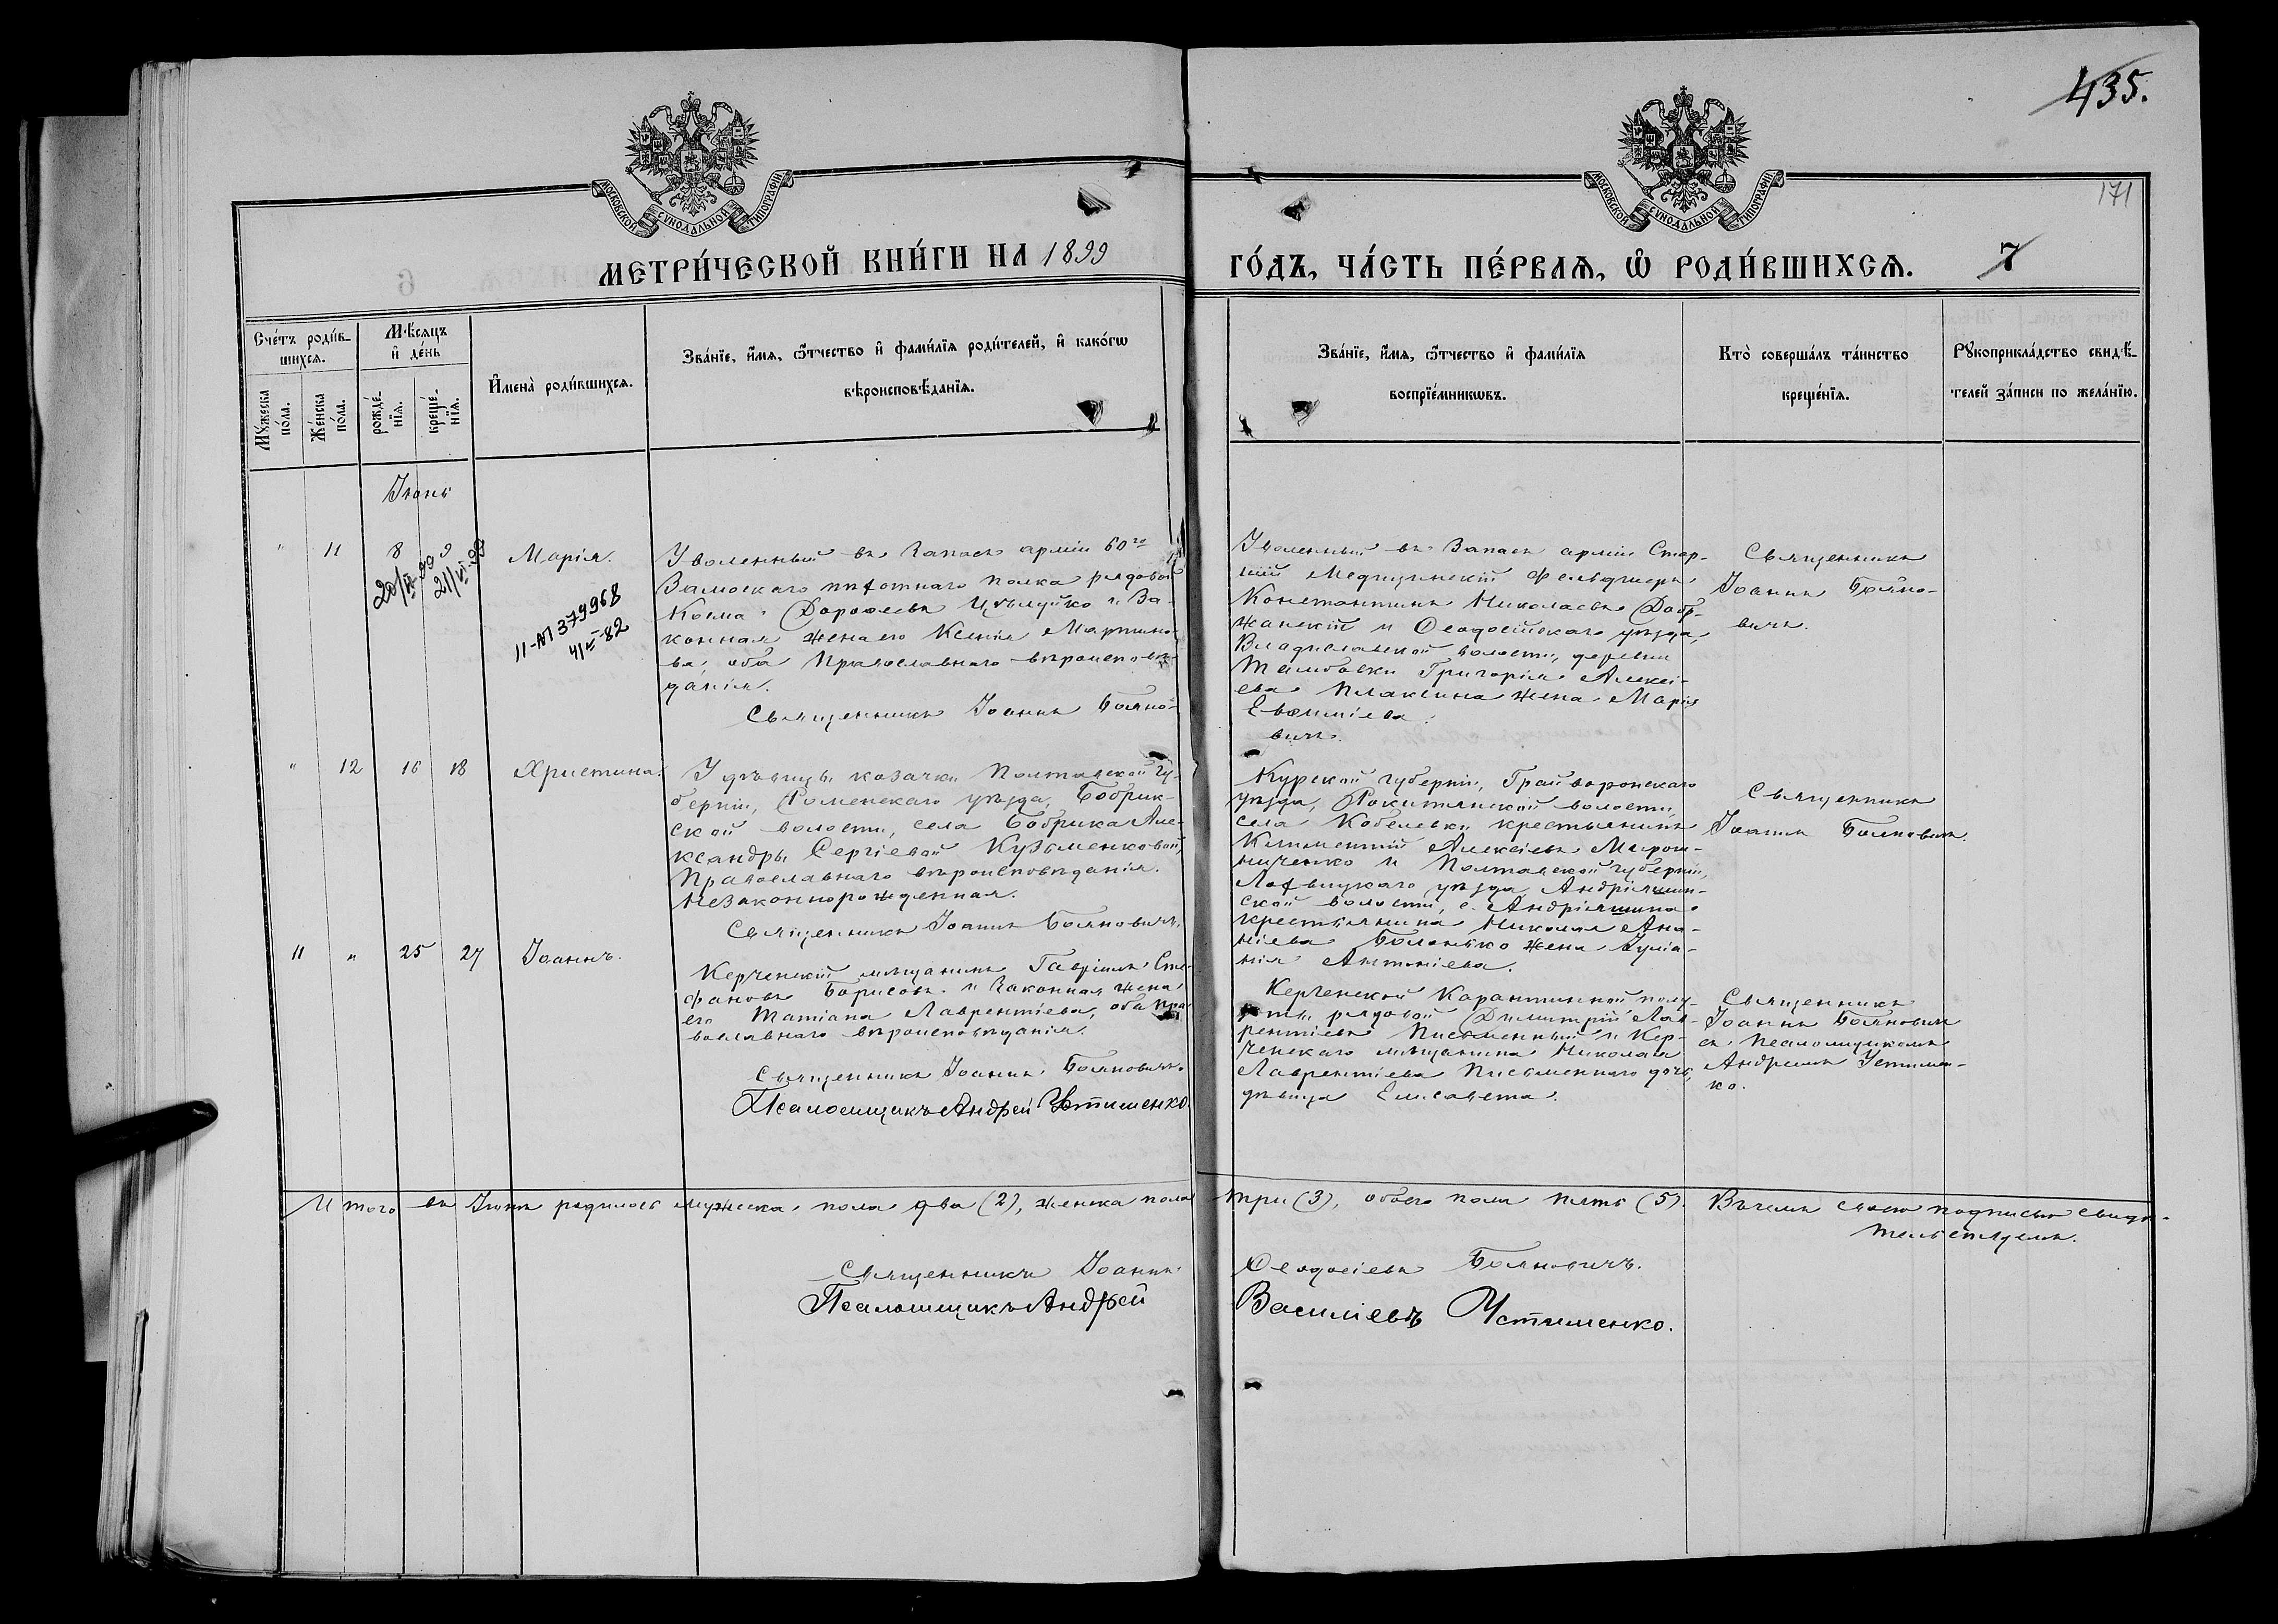 435.
171
МОСКОВСКОЙ СУНОДАЛЬНОЙ ТИПОГРАФІИ
МОСКОВСКОЙ СУНОДАЛЬНОЙ ТИПОГРАФІИ
МЕТРИ́ЧЕСКОЙ КНИ́ГИ НА 1899
ГО́ДЪ, ЧА́СТЬ ПЕ́РВАѦ, Ѡ҆ РОДИ́ВШИХСѦ. 7
Сче́тъ роди́в-
шихсѧ.
Мꙋ́жеска по́ла.
Же́нска по́ла.
Мѣ́сѧцъ
и҆ де́нь
рожде́-
нїѧ.
креще́-
нїѧ.
И҆мена̀ роди́вшихсѧ.
Зва́нїе, и҆́мѧ, ѻ҆́тчество и҆ фами́лїѧ роди́телей, и҆ како́гѡ
вѣроисповѣ́данїѧ.
Зва́нїе, и҆́мѧ, ѻ҆́тчество и҆ фами́лїѧ
воспрїе́мникѡвъ.
Кто̀ соверша́лъ та́инство
креще́нїѧ.
Рꙋкоприкла́дство свидѣ́-
телей за́писи по жела́нїю.
Іюнь
" 11 8 9 Марія.
20/VI 99 21/VI-99
II-АП 379968
4/III-82
Уволенный въ запасъ арміи 60го
Замоскаго пѣхотнаго полка рядовой
Козма Дороѳеевъ Цѣлуйко и за-
конная жена его Ксенія Мартино-
ва, оба православнаго вѣроисповѣ-
данія.
Священникъ Іоаннъ Бояно-
вичъ.
Уволенный въ запасъ арміи Стар-
шій Медицинскій фельдшеръ
Константинъ Николаевъ
и Ѳеодосійскаго уѣзда,
Владиславской волости, деревни
Тамбовки Григорія Алексі-
ева Плаксина жена Марія
Евѳиміева.
Священникъ
Іоаннъ Бояно-
вичъ.
" 12 16 18 Христина.
У дѣвицы козачки Полтавской гу-
берніи, Роменскаго уѣзда, Бобрик-
ской волости, села Бобрика Але-
ксандры Сергіевой Кузьменковой,
Православнаго вѣроисповѣданія.
Незаконнорожденная.
Священникъ Іоаннъ Бояновичъ.
Курской губерніи, Грайворонскаго
уѣзда, Ракитянской волости,
села Кобелевки крестьянинъ
Климентій Алексіевъ Мирош-
ниченко и Полтавской губерніи,
Лохвицкаго уѣзда, Андріяшин-
ской волости, с. Андріяшина
крестьянина Николая Ана-
ніева Болотько жена Іуліа-
нія Антоніева.
Священникъ
Іоаннъ Бояновичъ.
11 " 25 27 Іоаннъ.
Керченскій мѣщанинъ Гавріилъ Сте-
фановъ Борисовъ и законная жена
его Татіана Лаврентіева, оба пра-
вославнаго вѣроисповѣданія.
Священникъ Іоаннъ Бояновичъ.
Псаломщикъ Андрей Устименко.
Керченской Карантинной полу-
роты рядовой Димитрій Лав-
рентіевъ Письменный и Кер-
ченскаго мѣщанина Николая
Лаврентіева Письменнаго дочь,
дѣвица Елисавета.
Священникъ
Іоаннъ Бояновичъ
съ псаломщикомъ
Андреемъ Устимен-
ко.
Итого въ Іюнѣ родилось мужеска пола два (2), женска пола три (3), обоего пола пять (5). Въ чемъ своею подписью свидѣ-
тельствуемъ.
Священникъ Іоаннъ Ѳеодосіевъ Бояновичъ.
Псаломщикъ Андрей Василіевъ Устименко.